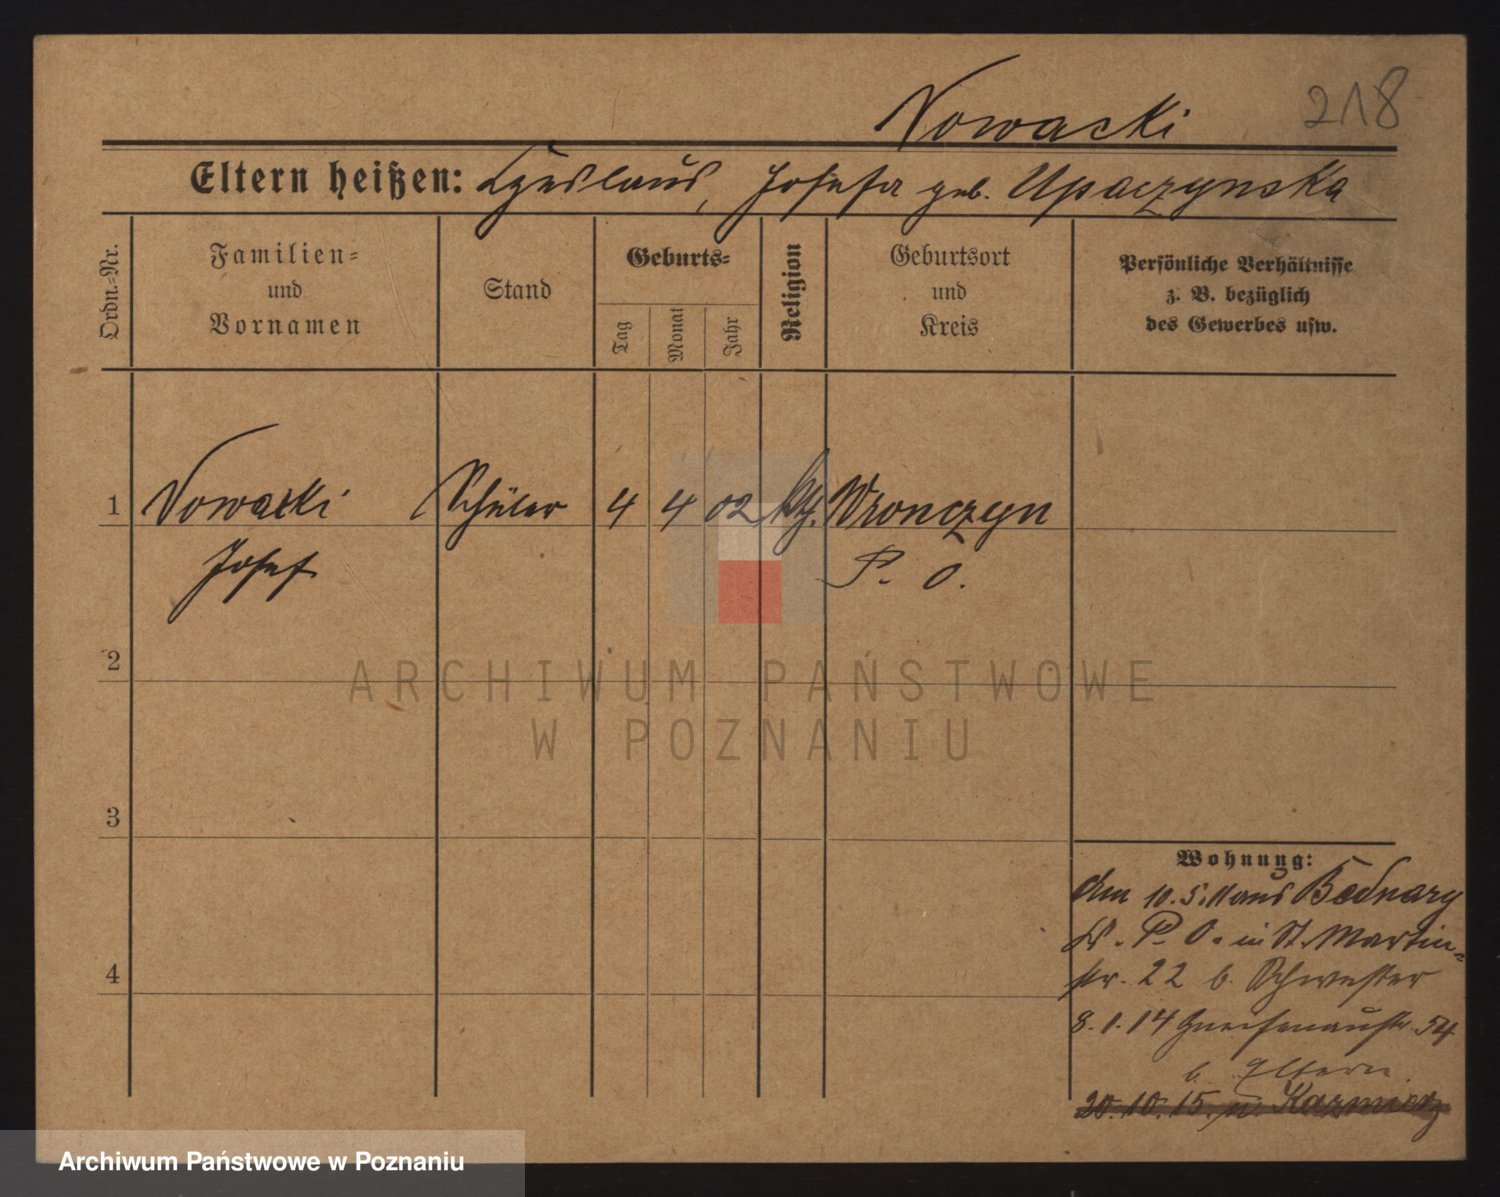 Nowacki
218
Eltern heißen: Czeslaus, Josefa geb. Upaczynska
Ordn.-Nr.
Familien-
und
Vornamen
Stand
Geburts-
Tag
Monat
Jahr
Religion
Geburtsort
und
Kreis
Persönliche Verhältnisse
z. B. bezüglich
des Gewerbes usw.
1 Nowacki Schüler 4 4 02 kth. Wronczyn
Josef P. O.
2
ARCHIWUM PAŃSTWOWE
W POZNANIU
3
Wohnung:
Am 10.5.11 aus Bednary
Kr. P. O. in St. Martin-
str. 22 b. Schwester
8.1.14 Gneisenaustr. 54
4
b. Eltern
20.10.15. n. Kazmierz
Archiwum Państwowe w Poznaniu